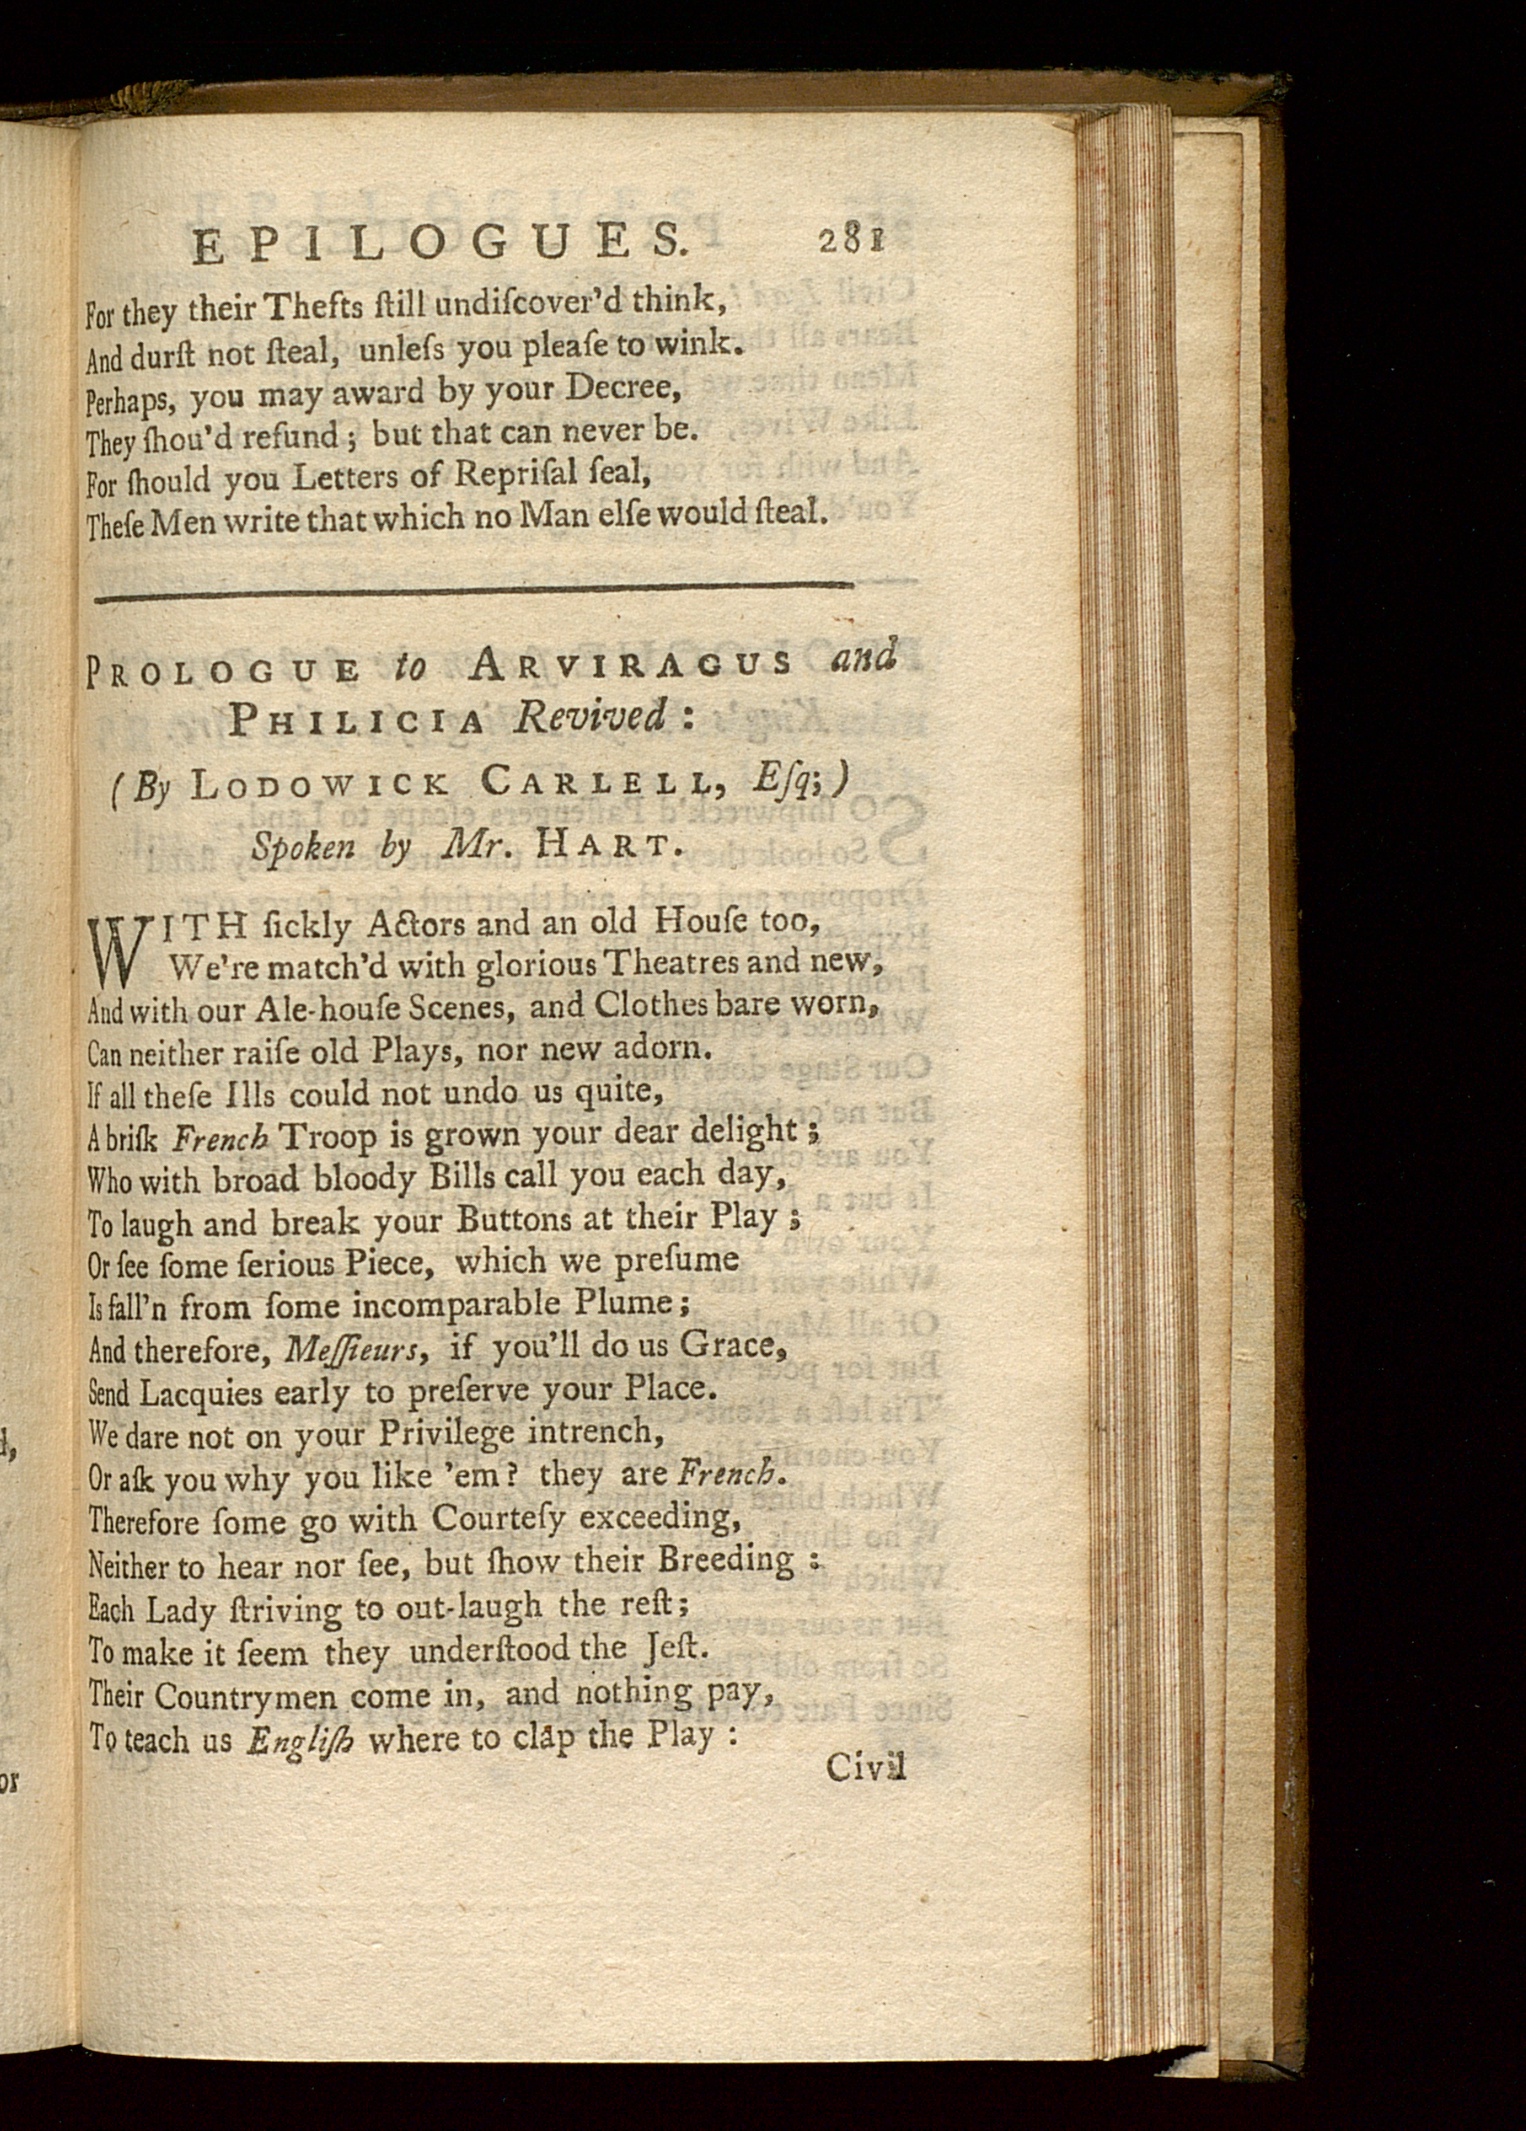 EPILOGUES. 281
For they their Thefts ſtill undiſcover'd think,
And durſt not ſteal, unleſs you pleaſe to wink.
Perhaps, you may award by your Decree,
They ſhou'd refund; but that can never be.
For ſhould you Letters of Repriſal ſeal,
Theſe Men write that which no Man elſe would ſteal.
PROLOGUE to ARVIRAGUS and
PHILICIA Revived:
(By LODOWICK CARLELL, Eſq;)
Spoken by Mr. HART.
WITH ſickly Actors and an old Houſe too,
We're match'd with glorious Theatres and new,
And with our Ale-houſe Scenes, and Clothes bare worn,
Can neither raiſe old Plays, nor new adorn.
If all theſe Ills could not undo us quite,
A briſk French Troop is grown your dear delight;
Who with broad bloody Bills call you each day,
To laugh and break your Buttons at their Play;
Or ſee ſome ſerious Piece, which we preſume
Is fall'n from ſome incomparable Plume;
And therefore, Meſſieurs, if you'll do us Grace,
Send Lacquies early to preſerve your Place.
We dare not on your Privilege intrench,
Or aſk you why you like 'em? they are French.
Therefore ſome go with Courteſy exceeding,
Neither to hear nor ſee, but ſhow their Breeding:
Each Lady ſtriving to out-laugh the reſt;
To make it ſeem they underſtood the Jeſt.
Their Countrymen come in, and nothing pay,
To teach us Engliſh where to clap the Play:
Civil